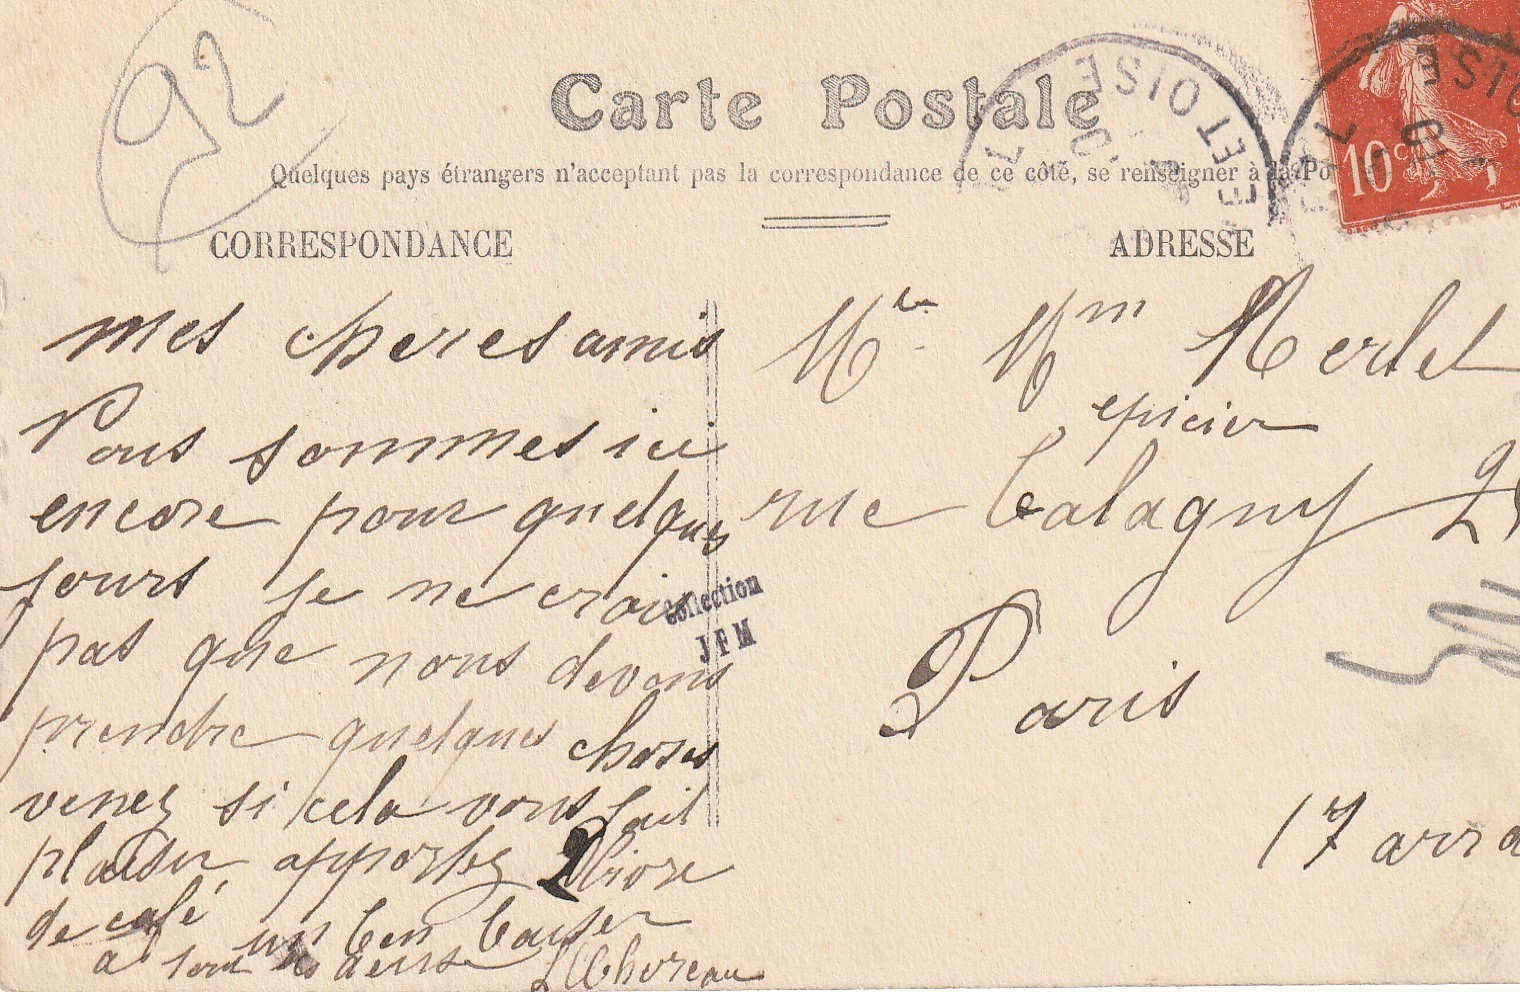 92
Carte Postale
Quelques pays étrangers n'acceptent pas la correspondance de ce côté, se renseigner à la Po
CORRESPONDANCE
ADRESSE
ET OISE
OISE
10c
mes cheres amis
Nous sommes ici
encore pour quelques
jours je ne crois
pas que nous devons
prendre quelques choses
venez si cela vous fait
plaisir apportez 2 livre
de café
un ben baiser
a tout les deuse
Mr Mm Merlet
epicier
rue Balagny 2
Paris
17 arra
Collection
JFM